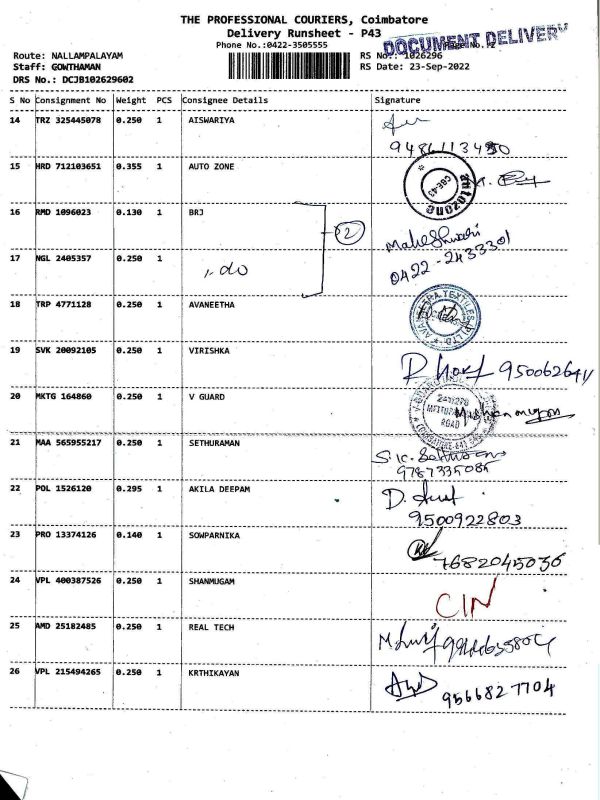 THE PROFESSIONAL COURIERS, Coimbatore
Delivery Runsheet - P43
Phone No.:0422-3505555
DOCUMENT DELIVERY
Route: NALLAMPALAYAM
RS No.: 1026296
Staff: GOWTHAMAN
RS Date: 23-Sep-2022
DRS No.: DCJB102629602
S No Consignment No Weight PCS Consignee Details Signature
14 TRZ 325445078 0.250 1 AISWARIYA
15 HRD 712103651 0.355 1 AUTO ZONE
autozone
CBE-43
16 RMD 1096023 0.130 1 BRJ
2
Maheshwari
0422-2433301
17 NGL 2405357 0.250 1
,, do
18 TRP 4771128 0.250 1 AVANEETHA
19 SVK 20092105 0.250 1 VIRISHKA
950062641
20 MKTG 164860 0.250 1 V GUARD
ROAD
21 MAA 565955217 0.250 1 SETHURAMAN
9787335085
22 POL 1526120 0.295 1 AKILA DEEPAM
9500922803
23 PRO 13374126 0.140 1 SOWPARNIKA
7682045036
24 VPL 400387526 0.250 1 SHANMUGAM
CIN
25 AMD 25182485 0.250 1 REAL TECH
26 VPL 215494265 0.250 1 KRTHIKAYAN
9566827704